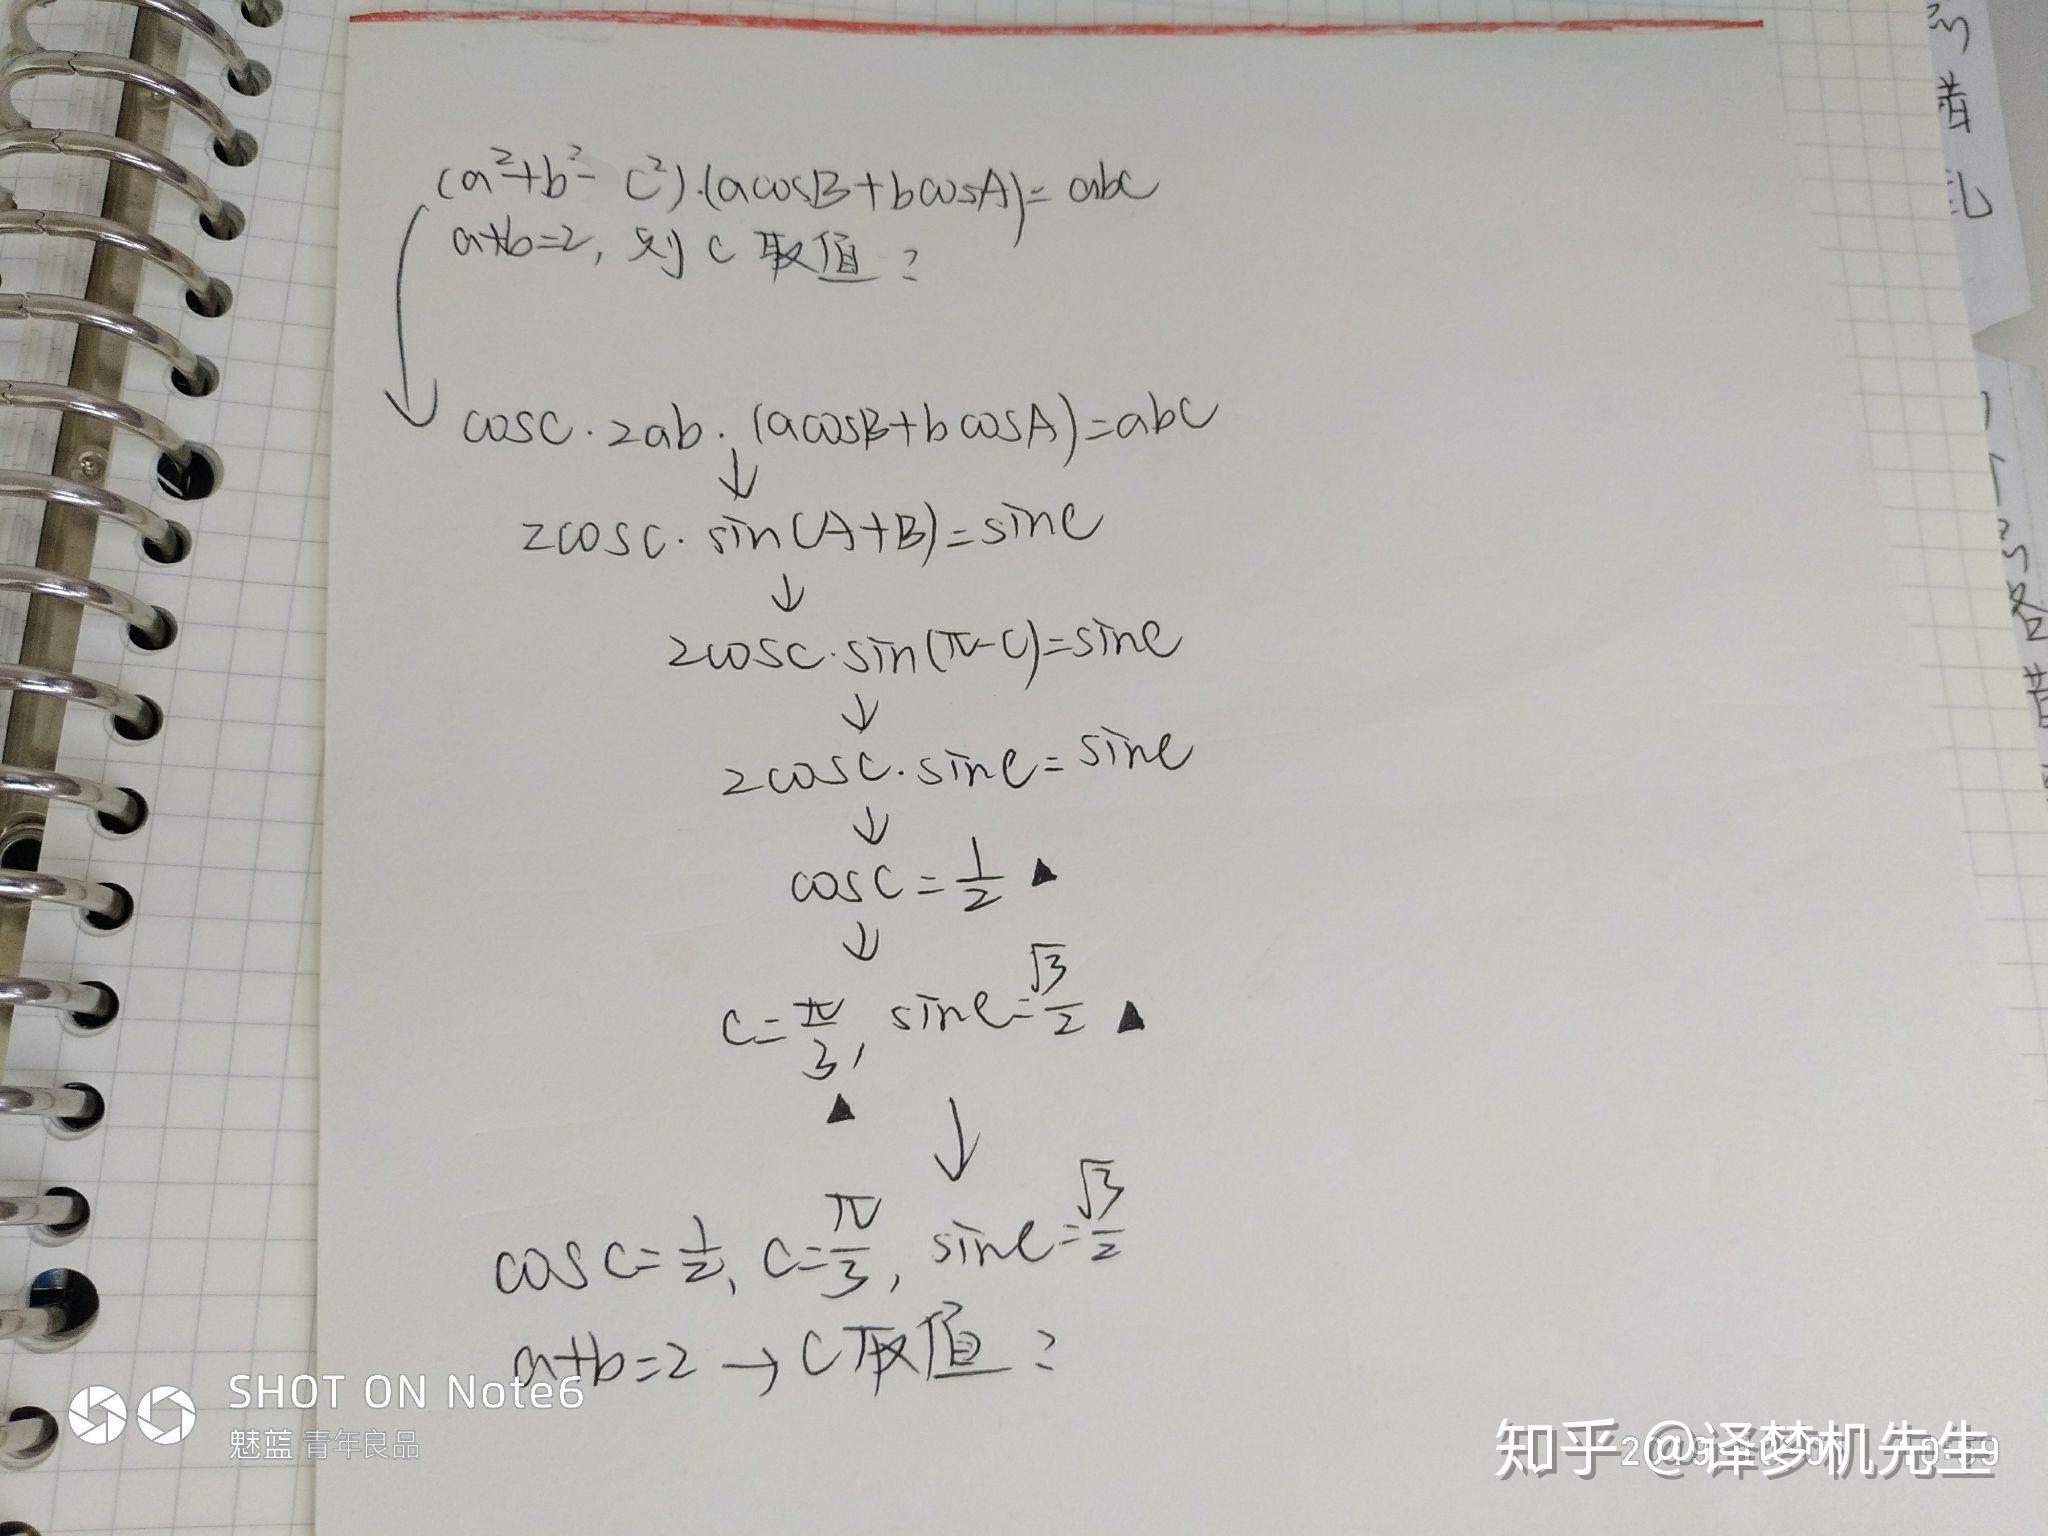 (a²+b²-c²)·(acosB+bcosA)=abc
a+b=2, 则 c 取值?
cosC·2ab·(acosB+bcosA)=abc
↓
2cosC·sin(A+B)=sinC
↓
2cosC·sin(π-C)=sinC
↓
2cosC·sinC=sinC
↓
cosC=1/2 ▲
↓
C=π/3, sinC=√3/2 ▲
▲
↓
cosC=1/2, C=π/3, sinC=√3/2
a+b=2 → C取值?
SHOT ON Note6
魅蓝 青年良品
知乎 @译梦机先生